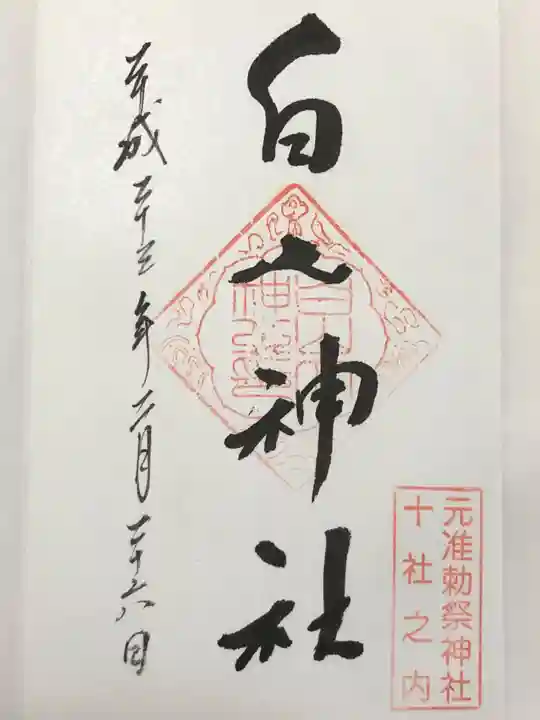 白山神社
元准勅祭神社
十社之内
平成二十三年二月二十六日